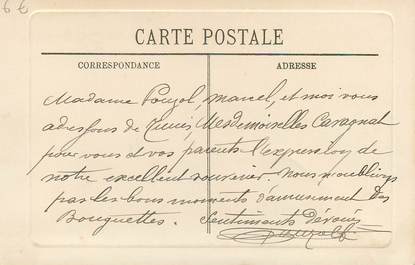 6 €
CARTE POSTALE
CORRESPONDANCE
ADRESSE
Madame Pouzol, Marcel, et moi vous
adressons de Tunis, Mesdemoiselles Cavagnat
pour vous et vos parents l'expression de
notre excellent souvenir. Nous n'oublions
pas les bons moments d'amusement des
Bouguettes. Sentiments dévoués